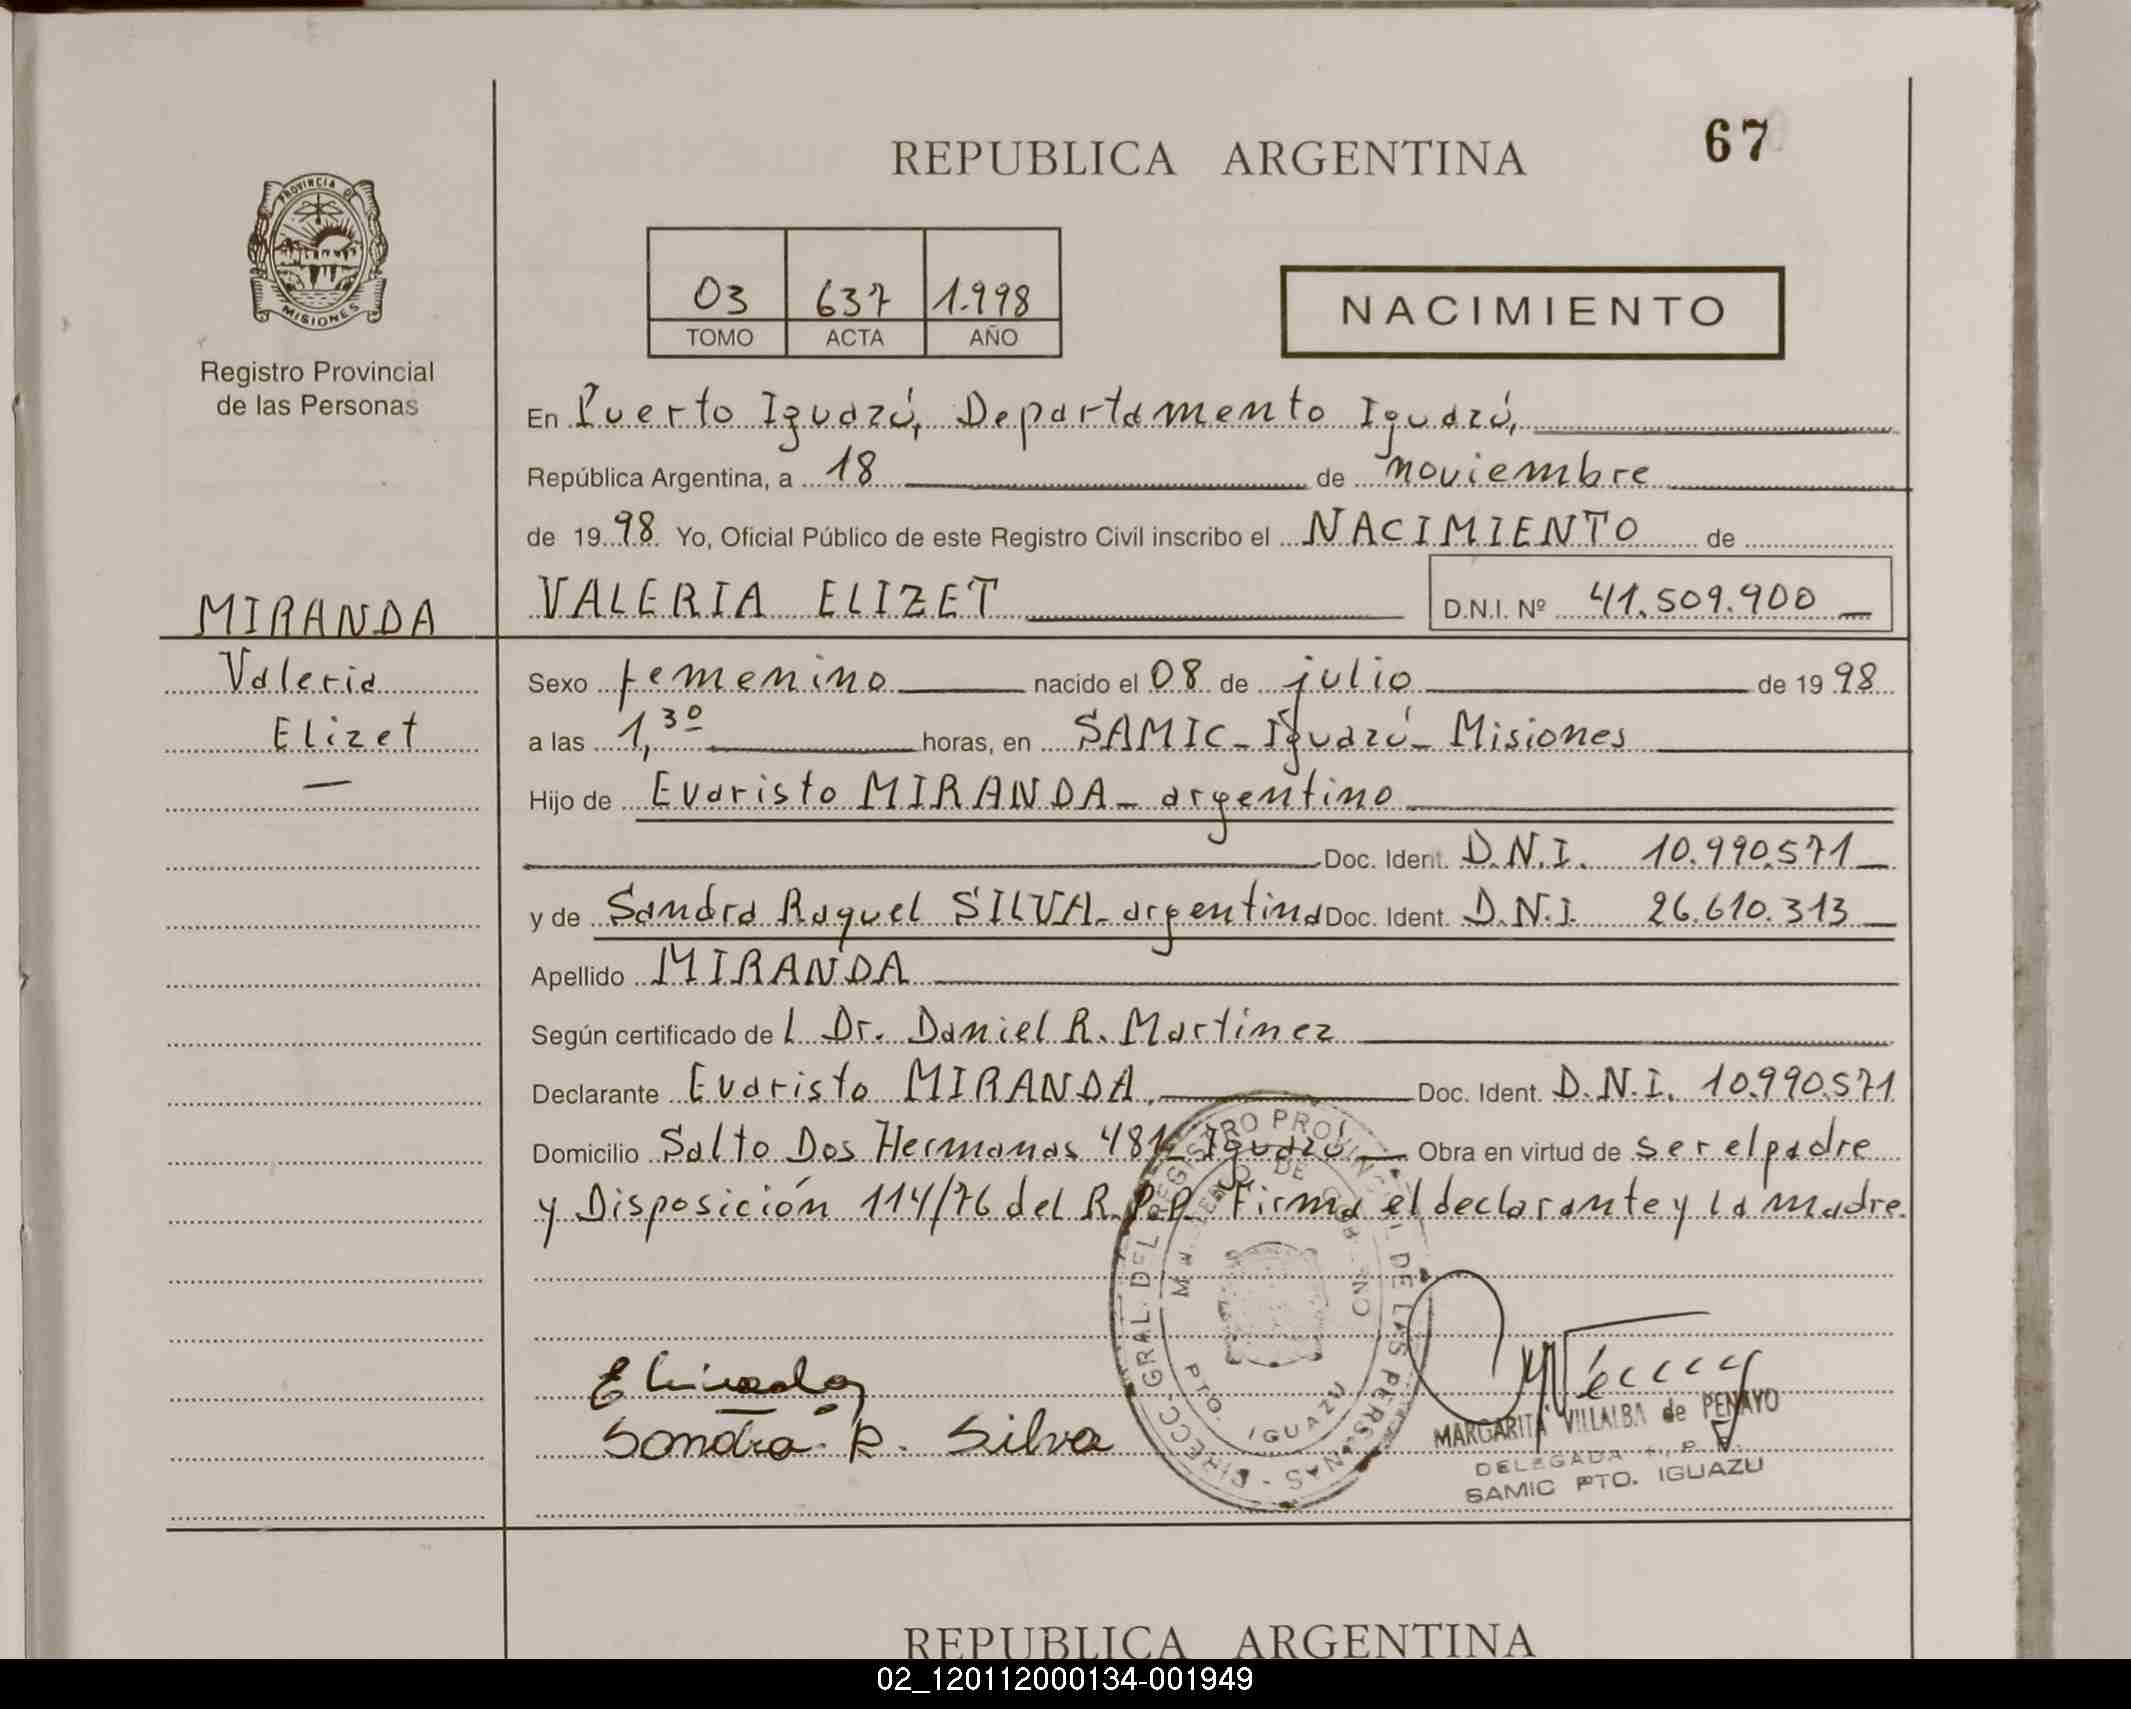 REPUBLICA ARGENTINA
67
PROVINCIA DE
MISIONES
Registro Provincial
de las Personas
03 637 1.998
TOMO ACTA AÑO
NACIMIENTO
En Puerto Iguazú, Departamento Iguazú,
República Argentina, a 18 de noviembre
de 1998 Yo, Oficial Público de este Registro Civil inscribo el NACIMIENTO de
VALERIA ELIZET D.N.I. Nº 41.509.900
MIRANDA
Valeria
Elizet
Sexo femenino nacido el 08 de julio de 1998
a las 1,30 horas, en SAMIC - Iguazú - Misiones
Hijo de Evaristo MIRANDA - argentino
Doc. Ident. D.N.I. 10.990.571
y de Sandra Raquel SILVA - argentina Doc. Ident. D.N.I. 26.610.313
Apellido MIRANDA
Según certificado de l Dr. Daniel R. Martínez
Declarante Evaristo MIRANDA. Doc. Ident. D.N.I. 10.990.571
Domicilio Salto Dos Hermanas 481 - Iguazú Obra en virtud de ser el padre
y Disposición 114/76 del R.P.P. Firma el declarante y la madre.
DIRECC. GRAL. DEL REGISTRO PROVINCIAL DE LAS PERSONAS
PTO. IGUAZU
Sandra R. Silva
MARGARITA VILLALBA de PENAYO
DELEGADA
SAMIC PTO. IGUAZU
REPUBLICA ARGENTINA
02_120112000134-001949